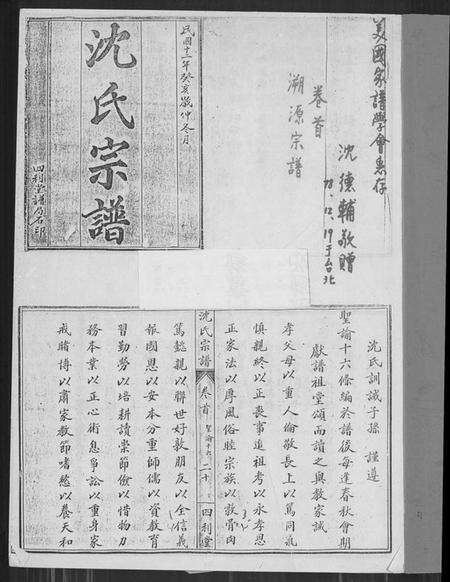 美國家譜學會惠存
沈德輔敬贈
78.12.19于台北
卷首
溯源宗譜
民國十二年癸亥歲仲冬月
沈氏宗譜
四利堂譜局石印
沈氏訓誡子孫 謹遵
聖諭十六條編於譜後每逢春秋會期
獻譜祖堂頌而讀之與敦家誡
孝父母以重人倫敬長上以篤同氣
慎親終以正喪事追祖考以永孝思
正家法以厚風俗睦宗族以敦骨肉
沈氏宗譜
卷首
二十
四利堂
篤懿親以聯世好敦朋友以全信義
報國恩以安本分重師儒以資教育
習勤勞以培耕讀崇節儉以惜物力
務本業以正心術息爭訟以重身家
戒賭博以肅家教節嗜慾以養天和